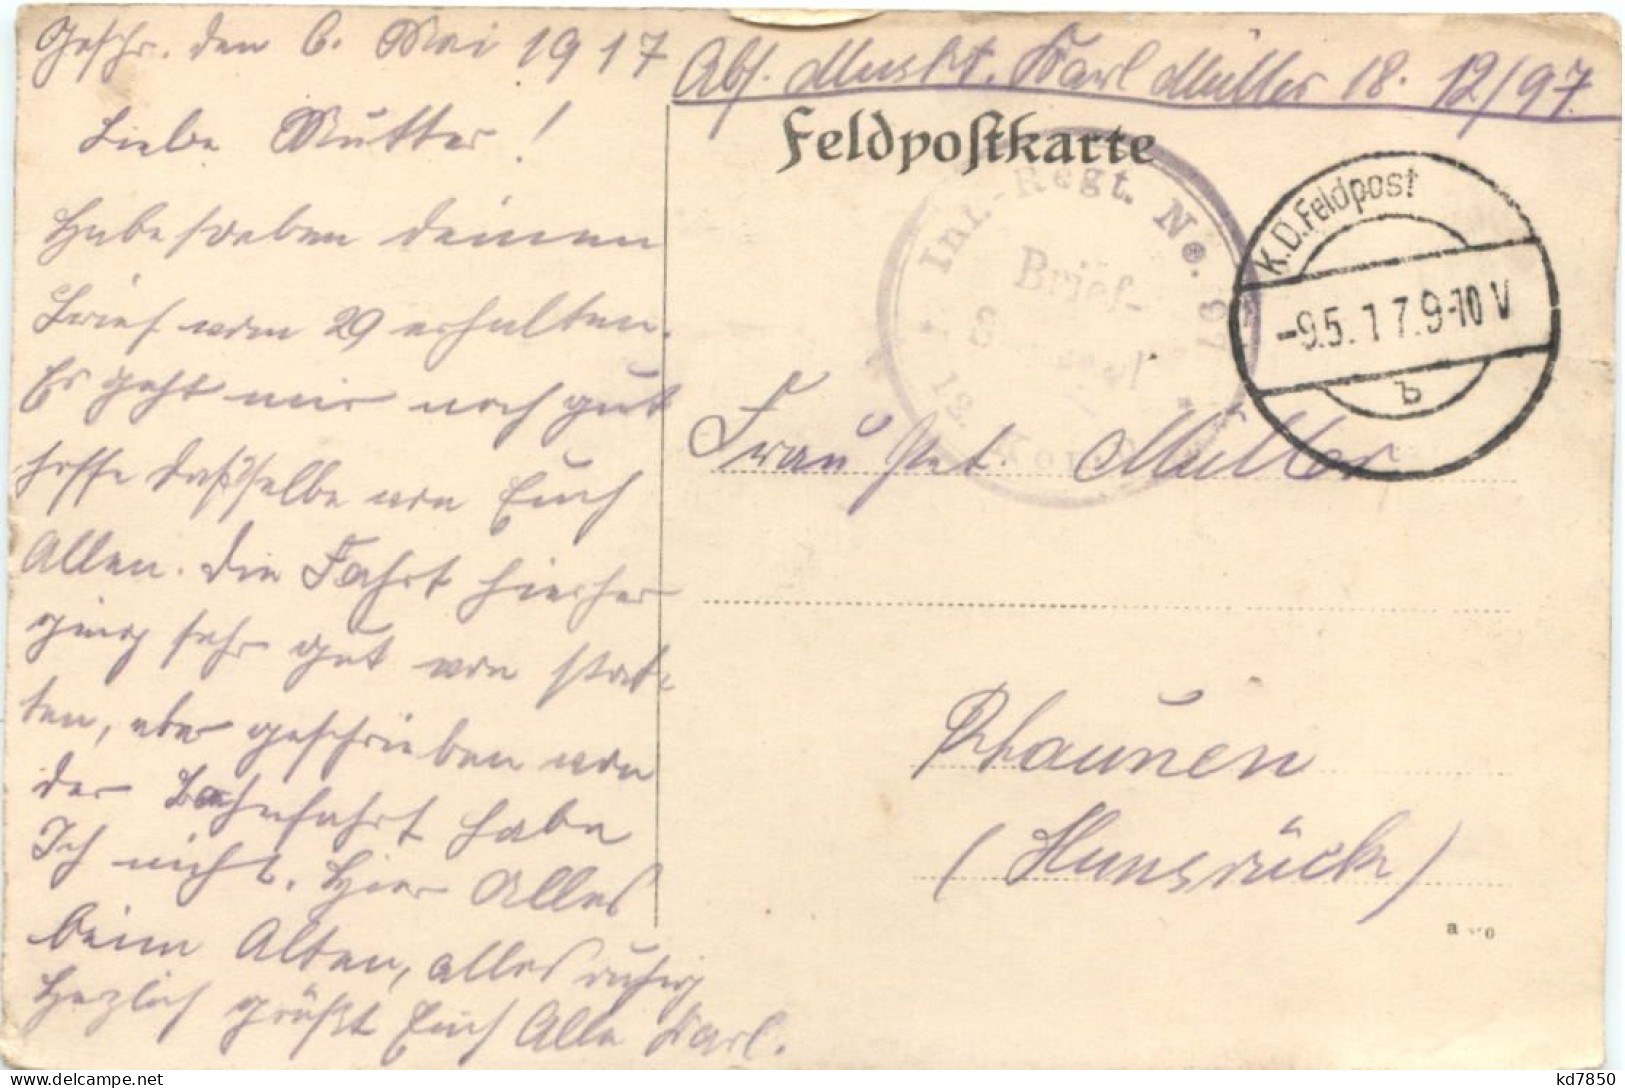 Geschr. den 6. Mai 1917
Liebe Mutter!
Habe soeben deinen
Brief vom 29 erhalten.
Es geht mir noch gut
hoffe daßselbe von Euch
Allen. Die Fahrt hierher
ging sehr gut von stat-
ten, aber geschrieben von
der Bahnfahrt habe
Ich nicht. Hier Alles
beim Alten, alles ruhig
Herzlich grüßt Euch Alle Karl.
Abs. Muskt. Karl Müller 18. 12/97
Feldpostkarte
Inf.-Regt. No. 97
Brief-
12. Kom.
K.D.Feldpost
-9.5.17.9-10V
b
Frau Pet. Müller
Rhaunen
(Hunsrück)
kd7850